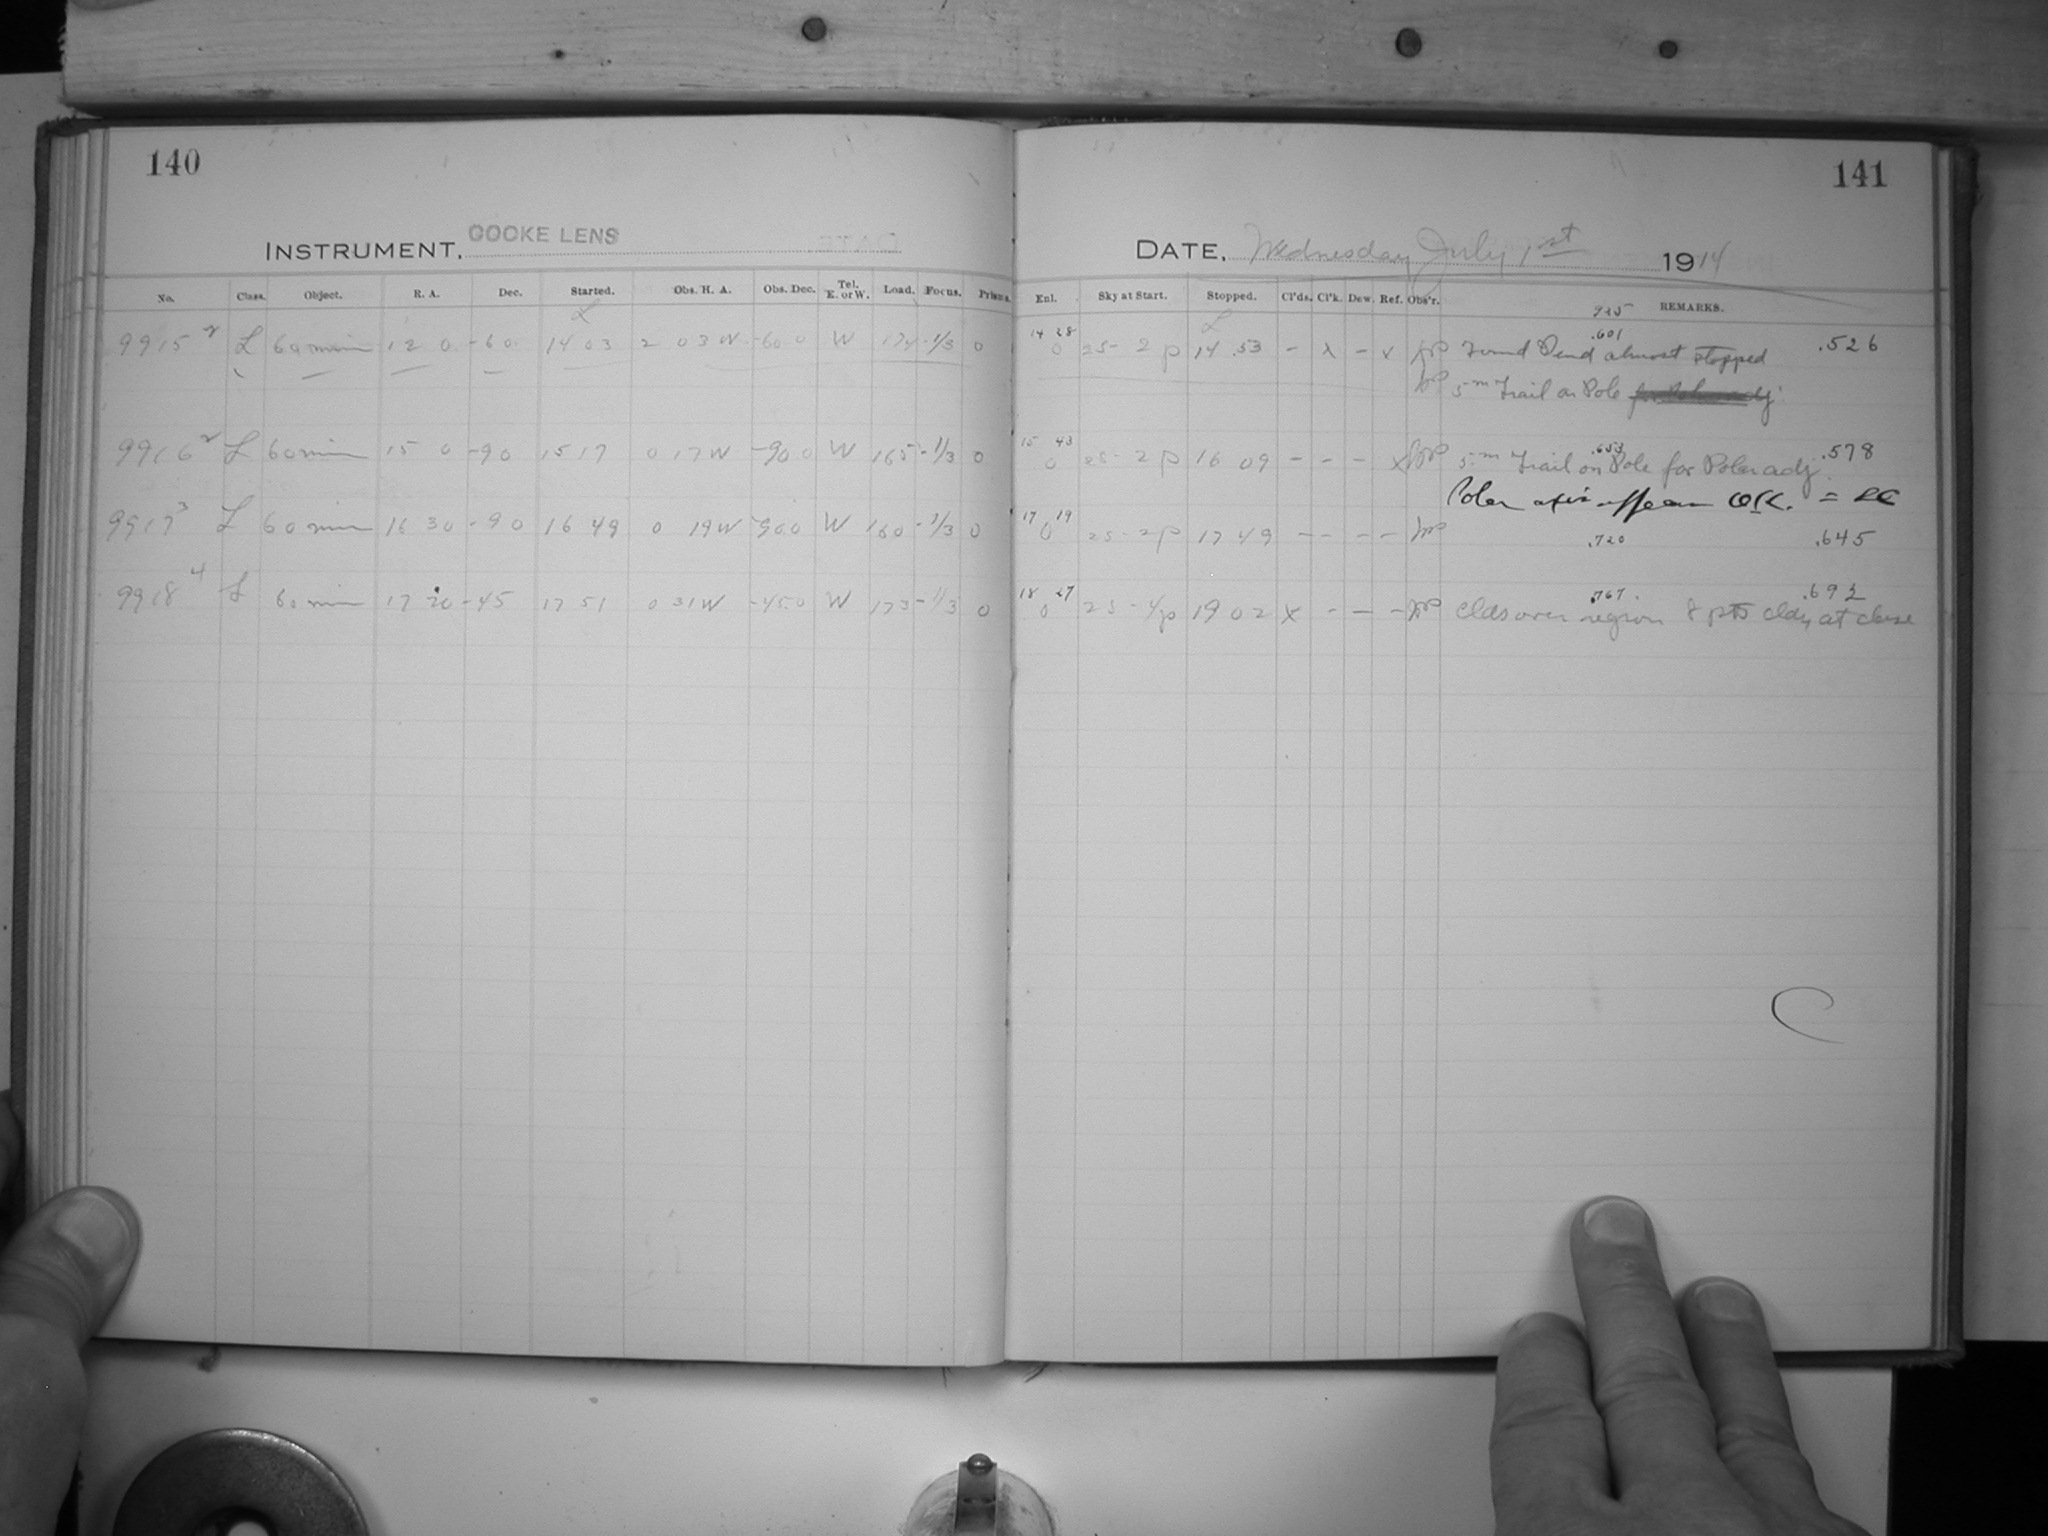 140
141
INSTRUMENT, COOKE LENS
DATE, Wednesday July 1st 1914
No. Class. Object. R. A. Dec. Started. Obs. H. A. Obs. Dec. Tel. E. or W. Load. Focus. Prisms.
Enl. Sky at Start. Stopped. Cl'ds. Cl'k. Dew. Ref. Obs'r. REMARKS.
9915 L 60 min 12 0 -60 14 03 2 03 W -60 0 W 174 -1/3 0
14 28 0 25 - 2 p 14 53 - x - x Found Pend almost stopped .601 .526
5m Trail on Pole
9916 L 60 min 15 0 -90 15 17 0 17 W -90 0 W 165 -1/3 0
15 43 0 25 - 2 p 16 09 - - - x 5m Trail on Pole for Polar adj. .653 .578
Polar axis appears O.K. = LC
9917 3 L 60 min 16 30 -90 16 49 0 19 W -90 0 W 160 -1/3 0
17 19 0 25 - 2 p 17 49 - - - - .720 .645
9918 4 L 60 min 17 20 -45 17 51 0 31 W -45 0 W 173 -1/3 0
18 27 0 25 - 4 p 19 02 x - - - Clds over region 8 pts cldy at close .767 .692